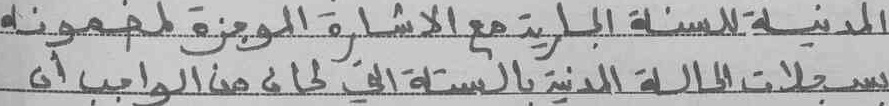 المدنية للسنة الجارية مع الاشارة الموجزة لمضمونه
بسجلات الحالة المدنية بالسنة التي كان من الواجب أن